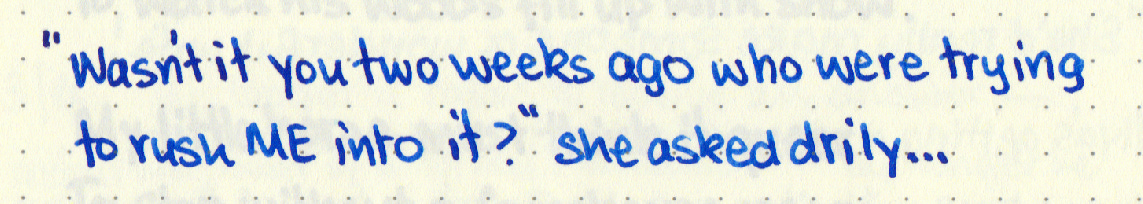 "Wasn't it you two weeks ago who were trying
to rush ME into it?" she asked drily...